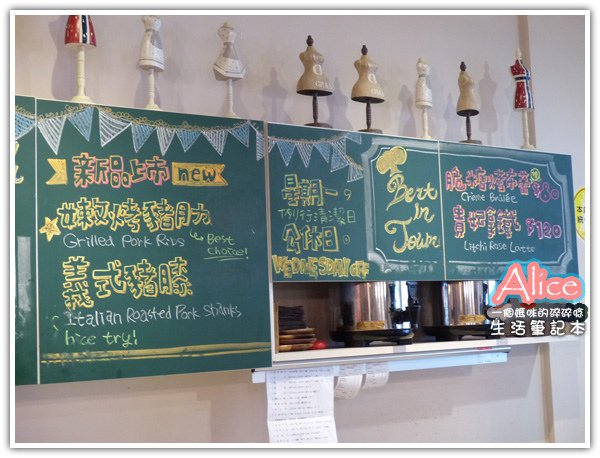 新品上市 new
嫩烤豬肋
Grilled Pork Ribs
Best choice!
義式豬膝
Italian Roasted Pork Shanks
nice try!
星期一
例行清潔日
公休日
WEDNESDAY OFF
Best
in
Town
脆糖烤布蕾 $80
Crème Brûlée
貴妃拿鐵 $120
Litchi Rose Latte
Alice
一個媽咪的碎碎唸
生活筆記本